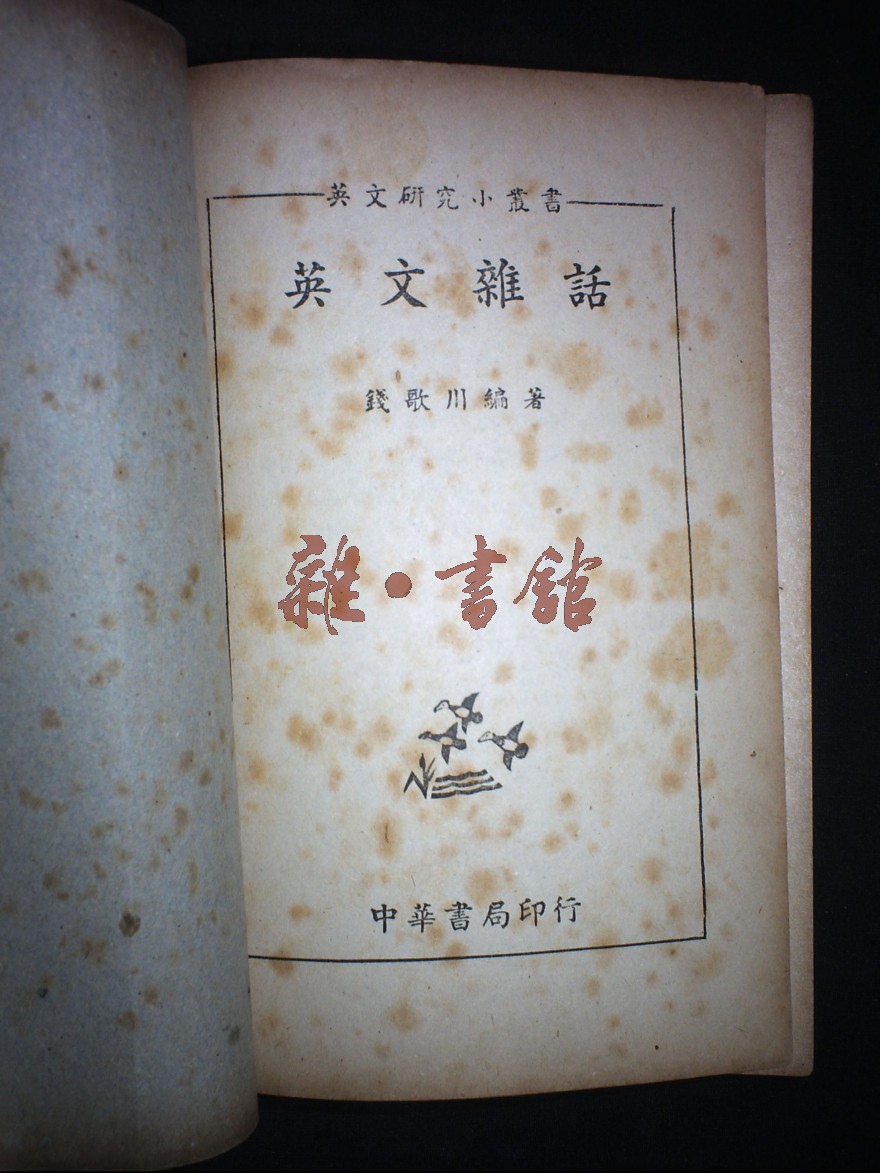 英文研究小叢書
英文雜話
錢歌川編著
雜·書館
中華書局印行